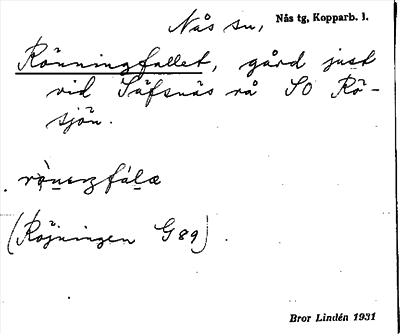 Nås sn, Nås tg, Kopparb. l.
Rönningfallet, gård just
vid Säfsnäs rå SO Rö-
sjön.
(Röjningen G89).
Bror Lindén 1931